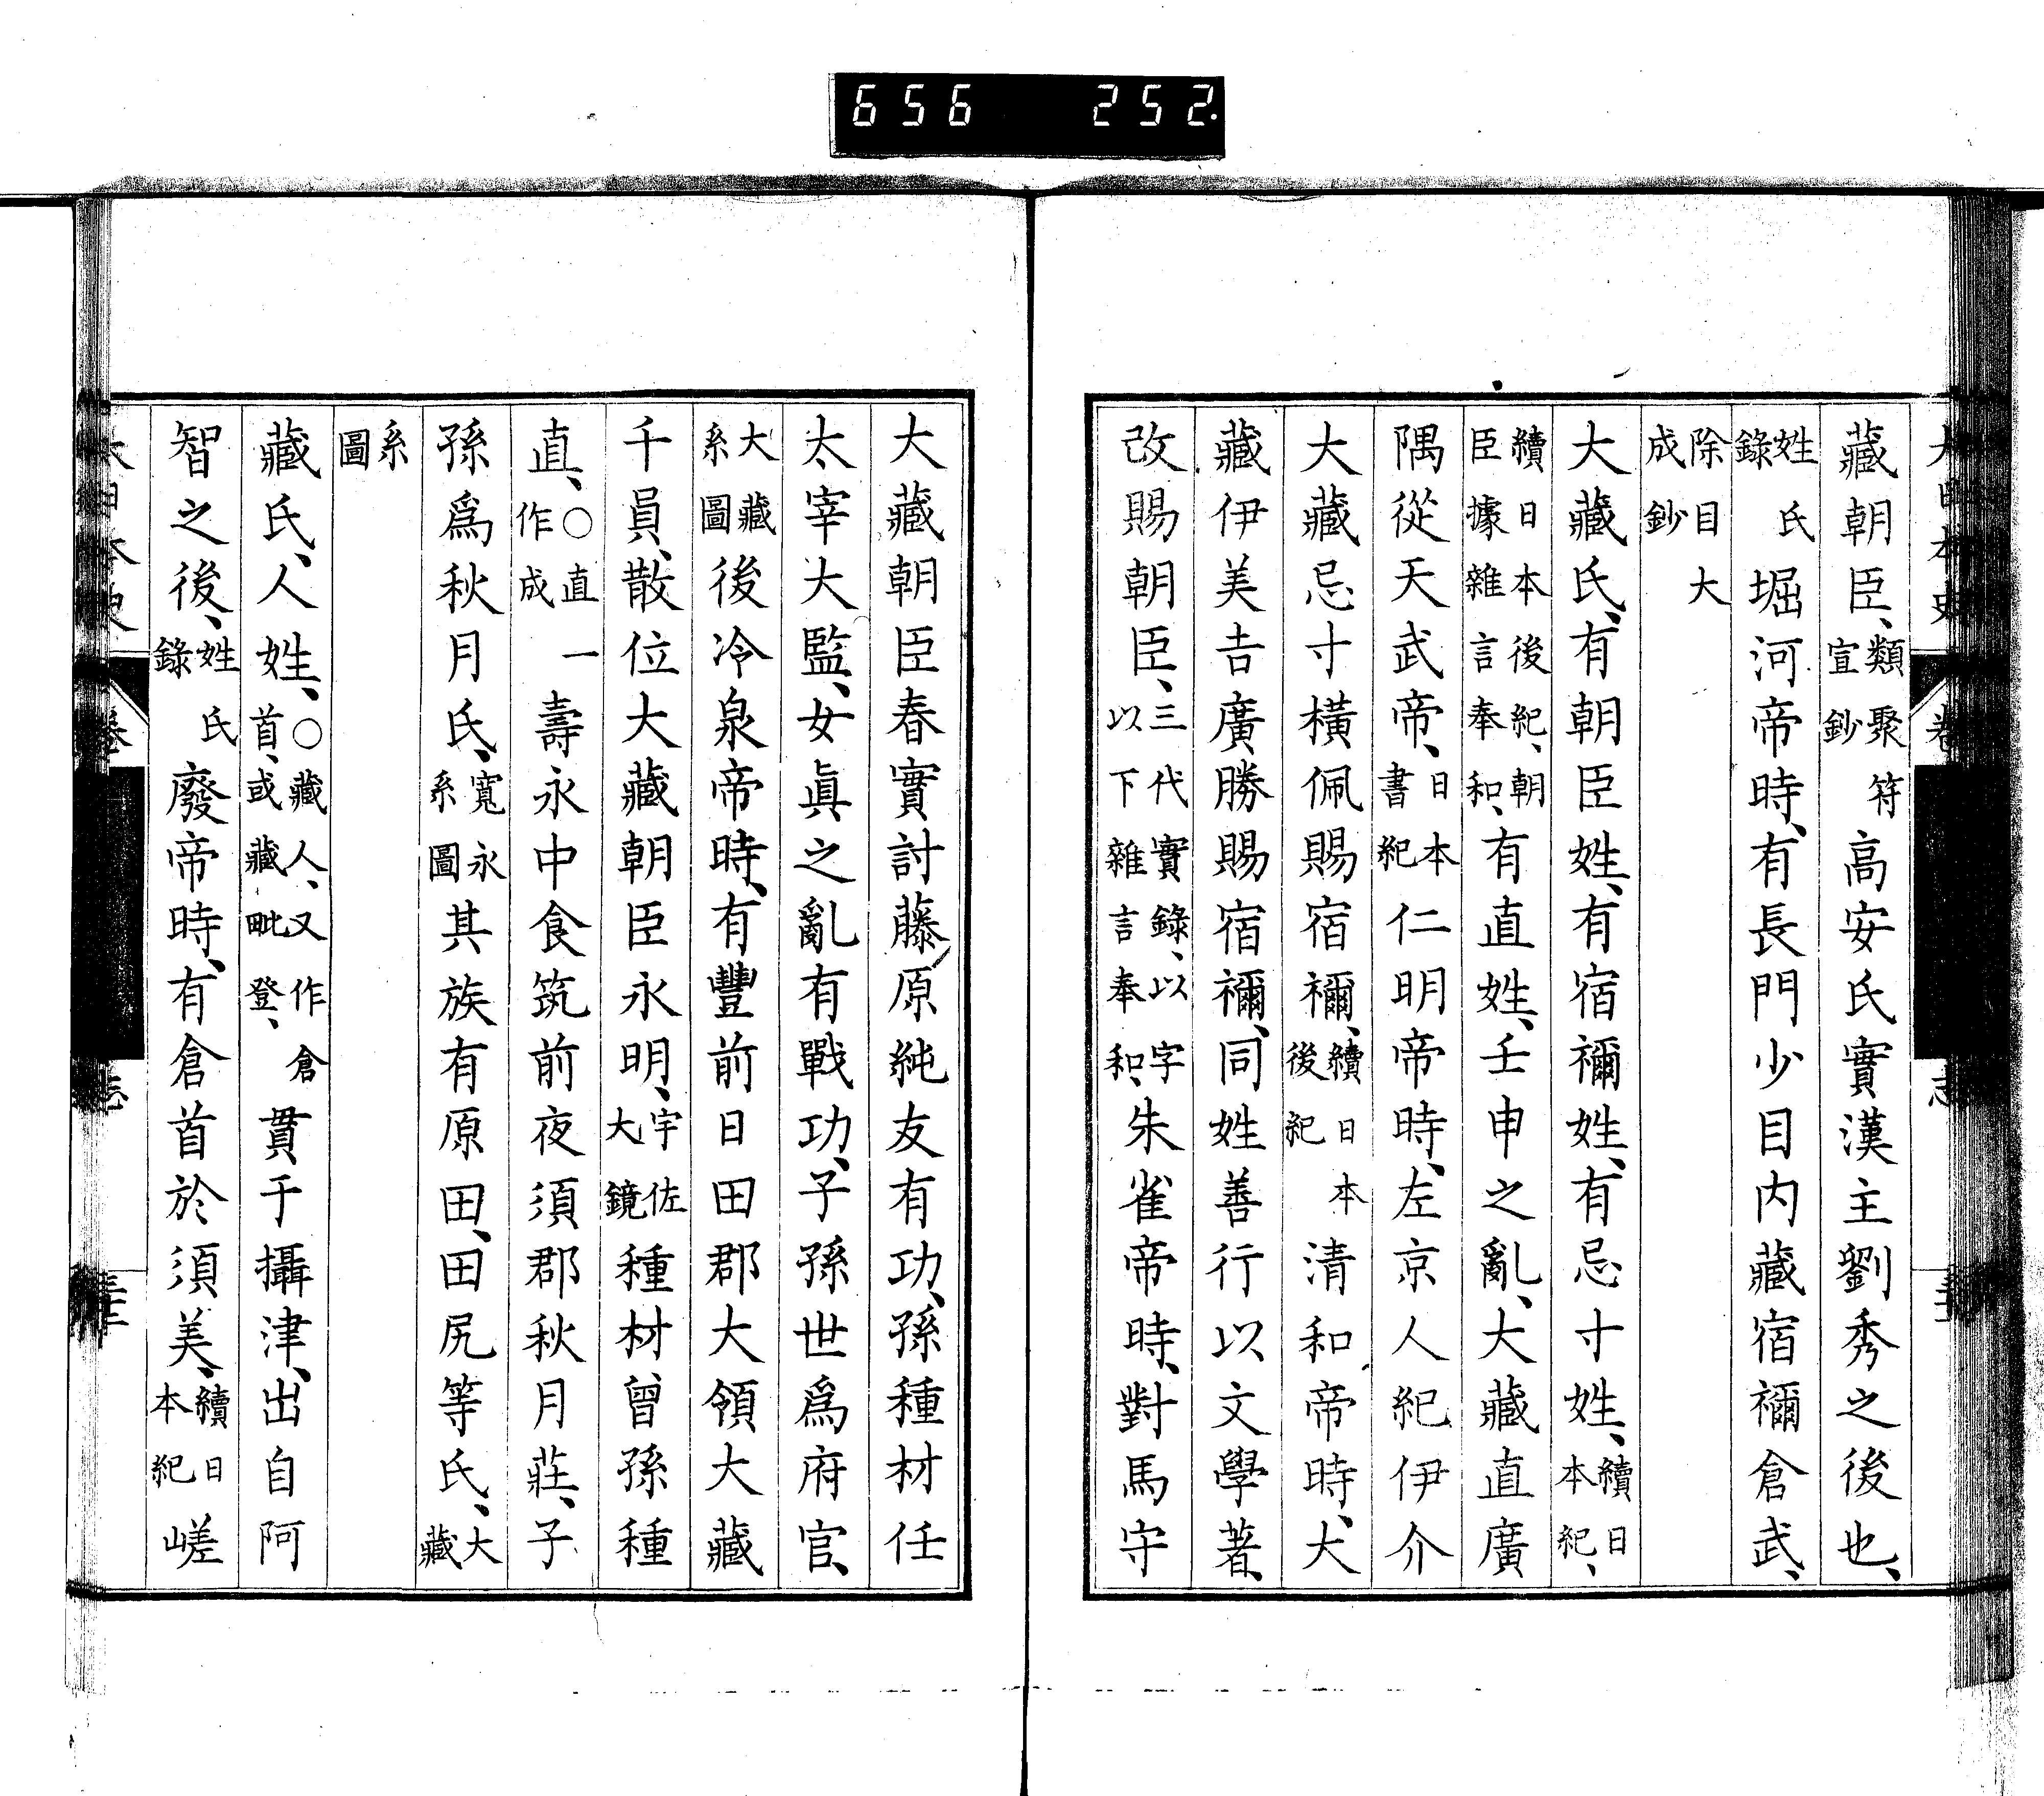 656 252.
藏朝臣、類聚符宣鈔高安氏實漢主劉秀之後也、
姓氏錄堀河帝時、有長門少目内藏宿禰倉武、
除目大成鈔
大藏氏、有朝臣姓、有宿禰姓、有忌寸姓、續日本紀、
續日本後紀、朝臣據雜言奉和、有直姓、壬申之亂、大藏直廣
隅從天武帝、日本書紀仁明帝時、左京人紀伊介
大藏忌寸横佩賜宿禰、續日本後紀清和帝時、大
藏伊美吉廣勝賜宿禰、同姓善行以文學著、
改賜朝臣、三代實錄、以字以下雜言奉和、朱雀帝時、對馬守
大藏朝臣春實討藤原純友有功、孫種材任
太宰大監、女眞之亂有戰功、子孫世爲府官、
大藏系圖後冷泉帝時、有豐前日田郡大領大藏
千員、散位大藏朝臣永明、宇佐大鏡種材曾孫種
直、○直一作成壽永中食筑前夜須郡秋月莊、子
孫爲秋月氏、寬永系圖其族有原田、田尻等氏、大藏
系圖
藏氏、人姓、○藏人、又作倉首、或藏毗登、貫于攝津、出自阿
智之後、姓氏錄廢帝時、有倉首於須美、續日本紀嵯